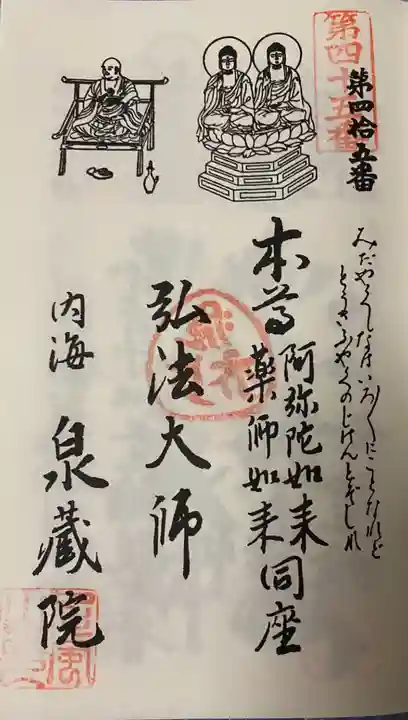 第四十五番
第四拾五番
みだやくしたはいろ〱にことなれど
とうさふやくのじげんとぞしれ
本尊
阿弥陀如来
薬師如来同座
弘法大師
内海 泉蔵院